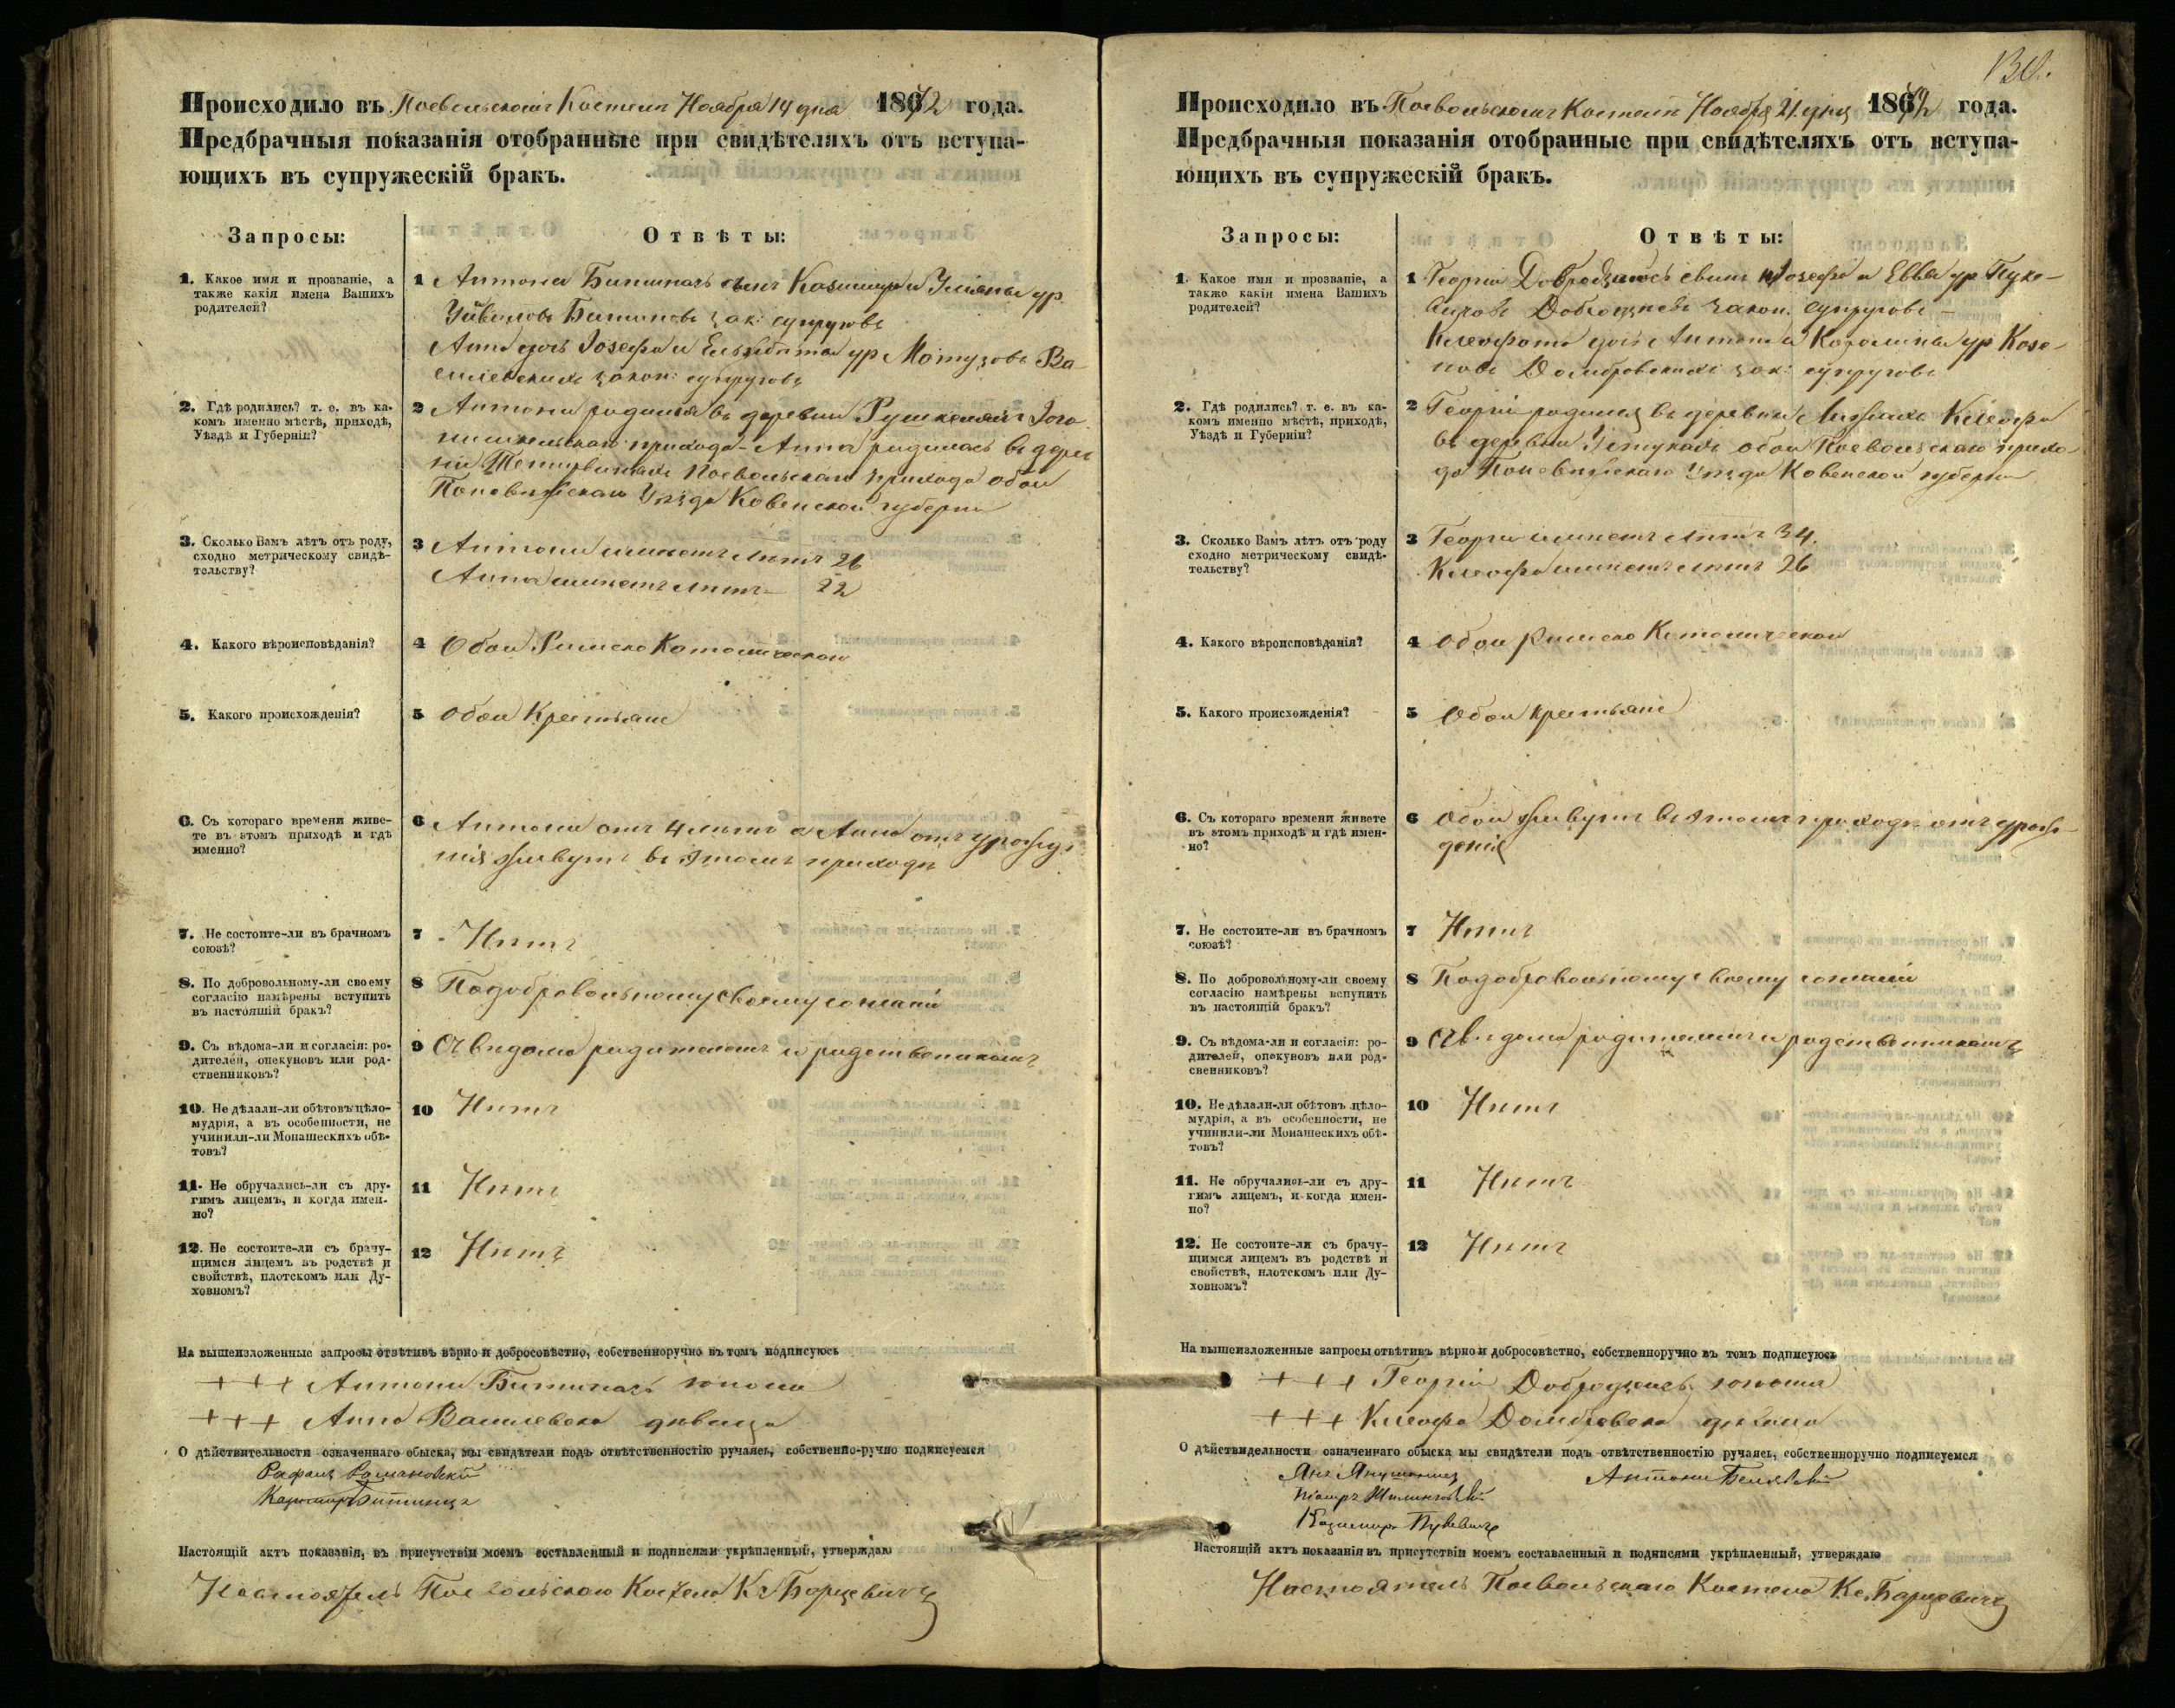 Происходило въ Поевольскомъ Костелѣ Ноября 14 дня 1872 года.
Предбрачныя показанія отобранные при свидѣтеляхъ отъ вступа-
ющихъ въ супружескій бракъ.
Запросы:
Отвѣты:
1. Какое имя и прозваніе, а
также какія имена Вашихъ
родителей?
1 Антони сынъ и ур.
зак: супруговъ
Анна дочь Іозефа и ур
закон: супруговъ
2. Гдѣ родились? т. е. въ ка-
комъ именно мѣстѣ, приходѣ,
Уѣздѣ и Губерніи?
2 Антони родился въ деревни
прихода - Анна родилась въ дерев
ни Поевольскаго прихода обои
Поневѣжскаго Уѣзда Ковенской губерни
3. Сколько Вамъ лѣтъ отъ роду,
сходно метрическому свидѣ-
тельству?
3 Антони имѣетъ лѣтъ 26
Анна имѣетъ лѣтъ - 22
4. Какого вѣроисповѣданія?
4 Обои Римско Католической
5. Какого происхожденія?
5 Обои Крестьяне
6. Съ котораго времени живе-
те въ этомъ приходѣ и гдѣ
именно?
6 Антони отъ 4 лѣтъ а Анна отъ урожде
нія живутъ въ этомъ приходѣ
7. Не состоите-ли въ брачномъ
союзѣ?
7 Нѣтъ
8. По добровольному-ли своему
согласію намѣрены вступить
въ настоящій бракъ?
8 Подобровольному своему согласіи
9. Съ вѣдома-ли и согласія: ро-
дителей, опекуновъ или род-
ственниковъ?
9 Съ вѣдома родителемъ и родственикомъ
10. Не дѣлали-ли обѣтовъ цѣло-
мудрія, а въ особенности, не
учинили-ли Монашескихъ обѣ-
товъ?
10 Нѣтъ
11. Не обручались-ли съ дру-
гимъ лицемъ, и когда имен-
но?
11 Нѣтъ
12. Не состоите-ли съ брачу-
щимся лицемъ въ родствѣ и
свойствѣ, плотскомъ или Ду-
ховномъ?
12 Нѣтъ
На вышеизложенные запросы отвѣтивъ вѣрно и добросовѣстно, собственноручно въ томъ подписуюсь
+++ Антони юноша
+++ Анна Василевска дѣвица
О дѣйствительности означеннаго обыска, мы свидѣтели подъ отвѣтственностію ручаясь, собственно-ручно подписуемся
Рафаль Романовскій
Настоящій актъ показанія, въ присутствіи моемъ составленный и подписями укрѣпленный, утверждаю
Настоятель Поевольскаго Костела Кс Барцевичъ
130.
Происходило въ Поевольскомъ Костелѣ Ноября 21 дня 1872 года.
Предбрачныя показанія отобранные при свидѣтеляхъ отъ вступа-
ющихъ въ супружескій бракъ.
Запросы:
Отвѣты:
1. Какое имя и прозваніе, а
также какія имена Вашихъ
родителей?
1 Георги сынъ Іозефа и Еввы ур
закон. супруговъ
Клеофата дочь Антона и Каролины ур
Домбровскихъ зак: супруговъ
2. Гдѣ родились? т. е. въ ка-
комъ именно мѣстѣ, приходѣ,
Уѣздѣ и Губерніи?
2 Георгі родился въ деревни Клеофа
въ деревни обои Поевольскаго прихо-
да Поневѣжскаго Уѣзда Ковенской губерни
3. Сколько Вамъ лѣтъ отъ роду
сходно метрическому свидѣ-
тельству?
3 Георги имѣетъ лѣтъ 34.
Клеофа имѣетъ лѣтъ 26
4. Какого вѣроисповѣданія?
4 Обои Римско Католической
5. Какого происхожденія?
5 Обои крестьяне
6. Съ котораго времени живете
въ этомъ приходѣ и гдѣ имен-
но?
6 Обои живутъ въ этомъ приходѣ отъ урож-
денія
7. Не состоите-ли въ брачномъ
союзѣ?
7 Нѣтъ
8. По добровольному-ли своему
согласію намѣрены вспупить
въ настоящій бракъ?
8 Подобровольному своему согласіи
9. Съ вѣдома-ли и согласія: ро-
дителей, опекуновъ или род-
свенниковъ?
9 Съ вѣдома родителемъ и родственникомъ
10. Не дѣлали-ли обѣтовъ цѣло-
мудрія, а въ особенности, не
учинили-ли Монашескихъ обѣ-
товъ?
10 Нѣтъ
11. Не обручались-ли съ дру-
гимъ лицемъ, и когда имен-
но?
11 Нѣтъ
12. Не состоите-ли съ брачу-
щимся лицемъ въ родствѣ и
свойствѣ, плотскомъ или Ду-
ховномъ?
12 Нѣтъ
На вышеизложенные запросы отвѣтивъ вѣрно и добросовѣстно, собственноручно въ томъ подписуюсь
+++ Георгій юноша
+++ Клеофа Домбровска дѣвица
О дѣйствидельности означеннаго обыска мы свидѣтели подъ отвѣтственностію ручаясь, собственноручно подписуемся
Янъ Антони
Казимиръ
Настоящій актъ показанія въ присутствіи моемъ составленный и подписями укрѣпленный, утверждаю
Настоятель Поевольскаго Костела Кс. Барцевичъ